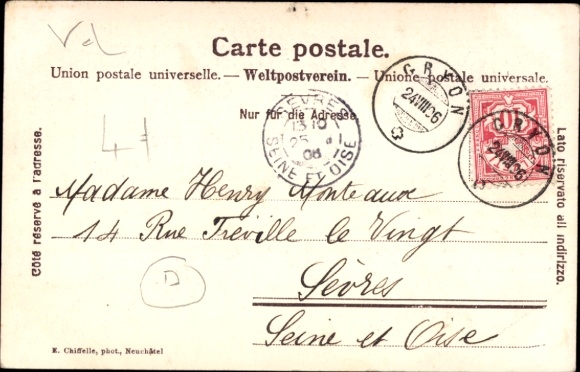 Vd
Carte postale.
Union postale universelle. — Weltpostverein. — Unione postale universale.
Nur für die Adresse.
Côté réservé à l'adresse.
Lato riservato all indirizzo.
GRYON
24 VIII 06
GRYON
24 VIII 06
10
SEVRES
25
06
SEINE ET OISE
Madame Henry Monteaux
14 Rue Tréville le Vingt
Sèvres
Seine et Oise
D
E. Chiffelle, phot., Neuchâtel